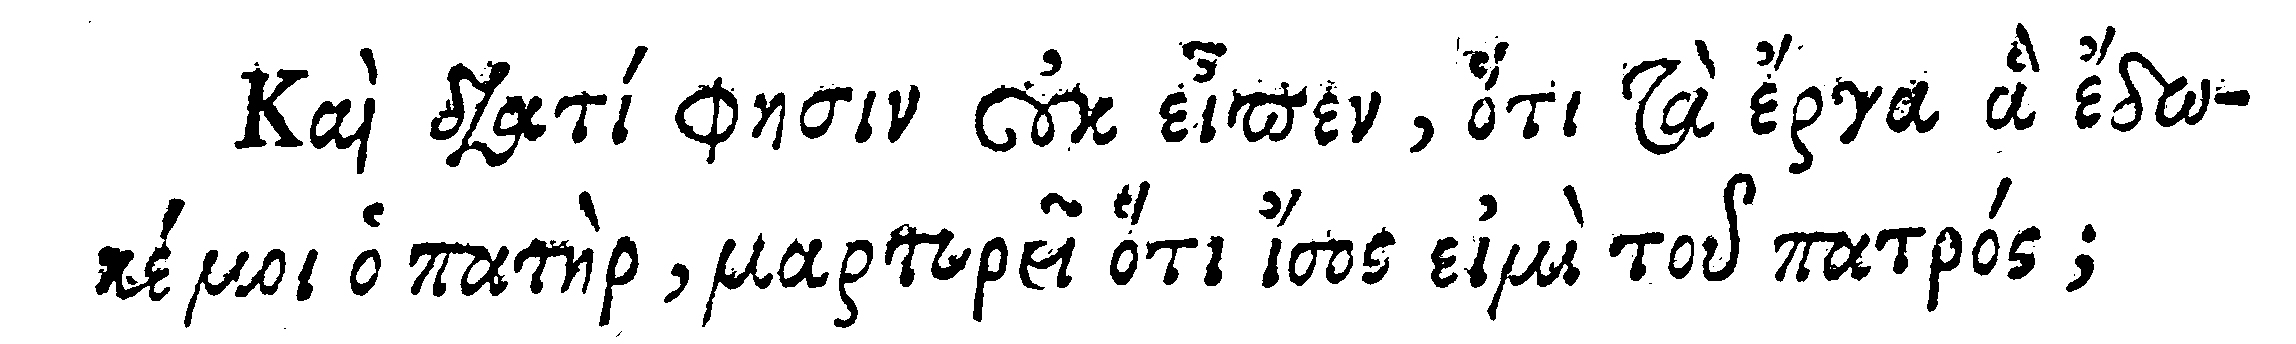 Καὶ διατί φησιν οὐκ εἶπεν, ὅτι τὰ ἔργα ἃ ἔδω-
κέ μοι ὁ πατὴρ, μαρτυρεῖ ὅτι ἴσος εἰμὶ τοῦ πατρός;